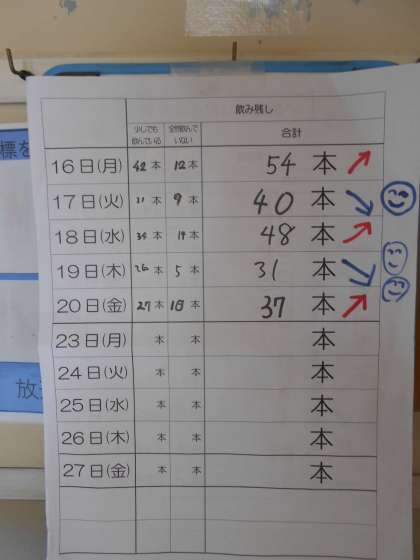 飲み残し
少しでも飲んでいる 全然飲んでいない 合計
16日(月) 42本 12本 54本
17日(火) 31本 9本 40本
18日(水) 34本 14本 48本
19日(木) 26本 5本 31本
20日(金) 27本 10本 37本
23日(月) 本 本 本
24日(火) 本 本 本
25日(水) 本 本 本
26日(木) 本 本 本
27日(金) 本 本 本
標を
放